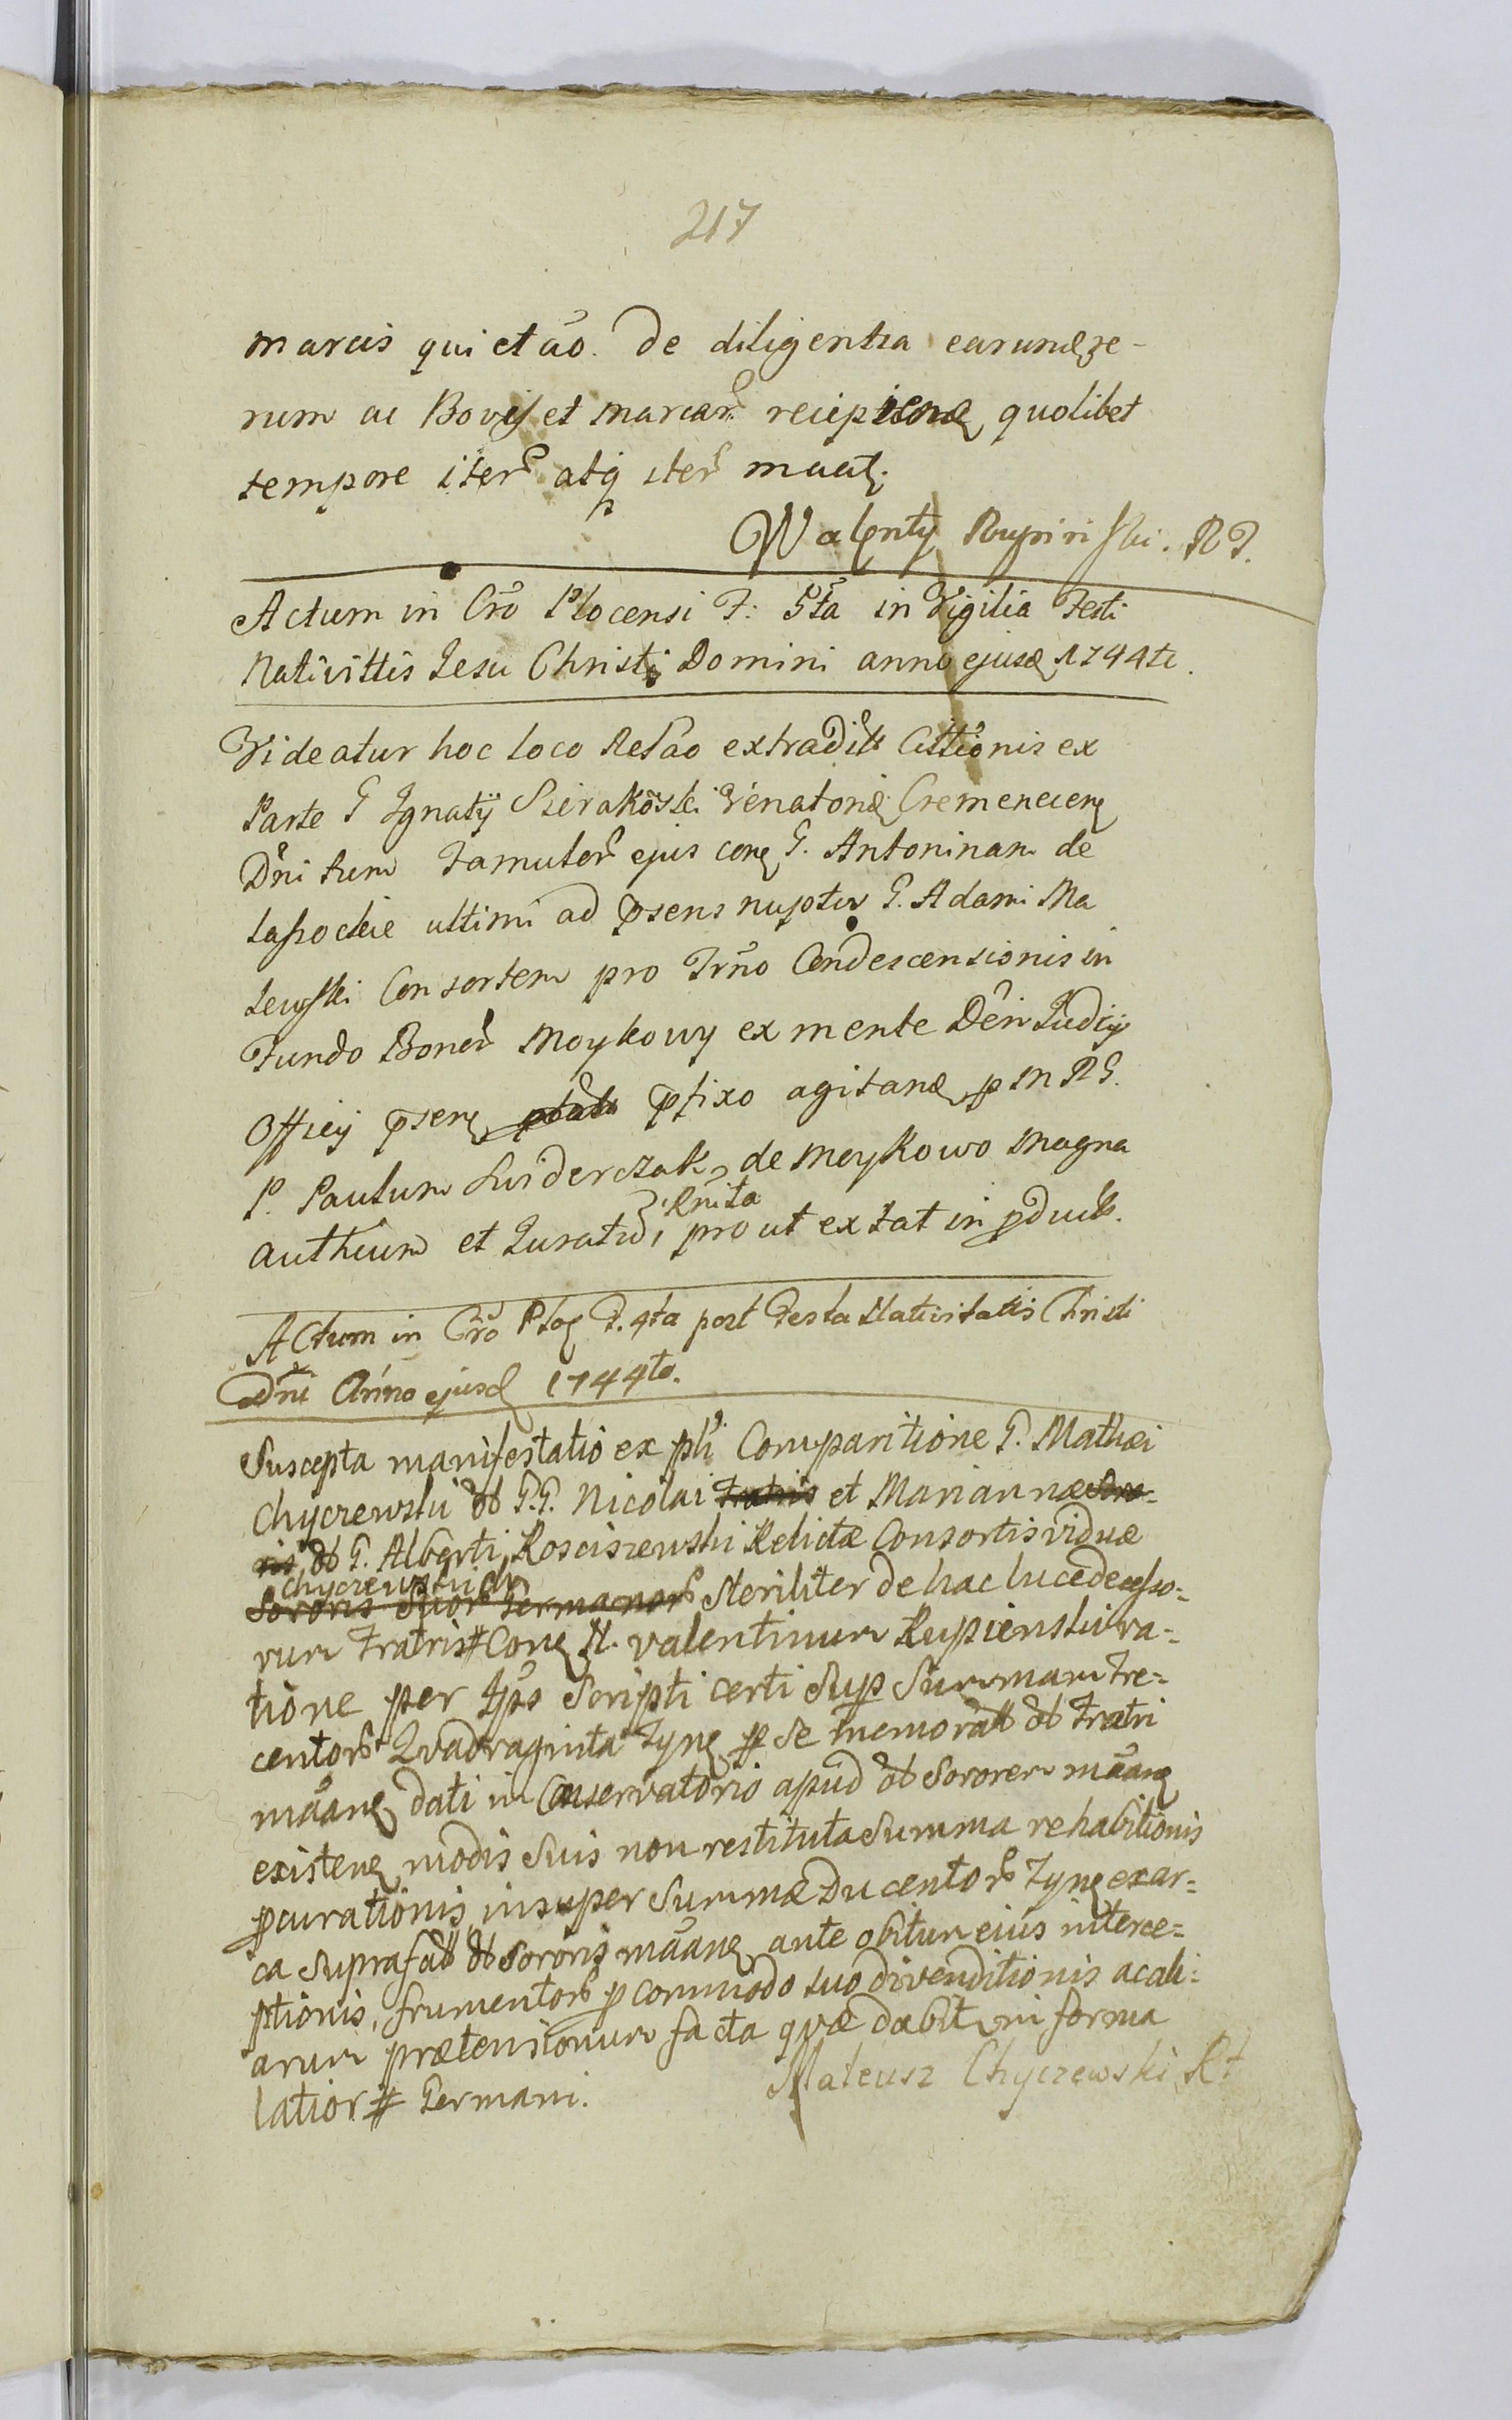 217
marcis quietāo. De diligentia earund re-
rum ac Bovis et marcar recipiend quolibet
tempore iter atq iter maat.
Walenty Rupiniski. RT.
Actum in Cro Plocensi F: 5ta in Vigilia Festi
Nativittis Jesu Christi Domini anno ejusd 1744to.
Videatur hoc loco Relāo extradit Citationis ex
Parte G Ignatij Sierakōski Venatorid Cremenecen
Dni tum Famulor ejus con G. Antoninam de
Lasockie ultimi ad psens nuptu G. Adami Ma
lewski Consortem pro Trno Condescensionis in
Fundo Bonor Moykowy ex mente Dni Judicij
Officij psen pfixo agitand p M R G.
P. Paulum Swiderczak de Moykowo Magna
Rnita
authum et Juratu, prout extat in pduct.
Actum in Cro Ploc F. 4ta post Festa Nativitatis Christi
Dni Anno ejusd 1744to.
Suscepta manifestatio ex pli Comparitione G. Mathæi
Chyczewski ob G.G. Nicolai Fratris et Mariannæ Soro-
ris ob G. Alberti Kosciszewski Relictæ Consortis viduæ
Chyczewski
Sororis Suor Germanor Steriliter de hac luce decesso-
rum Fratris # Con N. Valentinum Rupienski ra-
tione per Ips Scripti certi Sup Summam Tre-
centor Qvadraginta Tyn p se memorat ob Fratri
māan dati in Conservatorio apud ob Sororem māan
existen modis Suis non restituta Summa rehabitionis
pcurationis, insuper Summæ Ducentor Tyn ex ar-
ca Suprafat ob Sororis māan ante obitum ejus interce-
ptionis, frumentor p commodo suo divenditionis ac ali-
arum prætensionum facta qvæ dabit in forma
latior # Germani.
Mateusz Chyczewski Rt